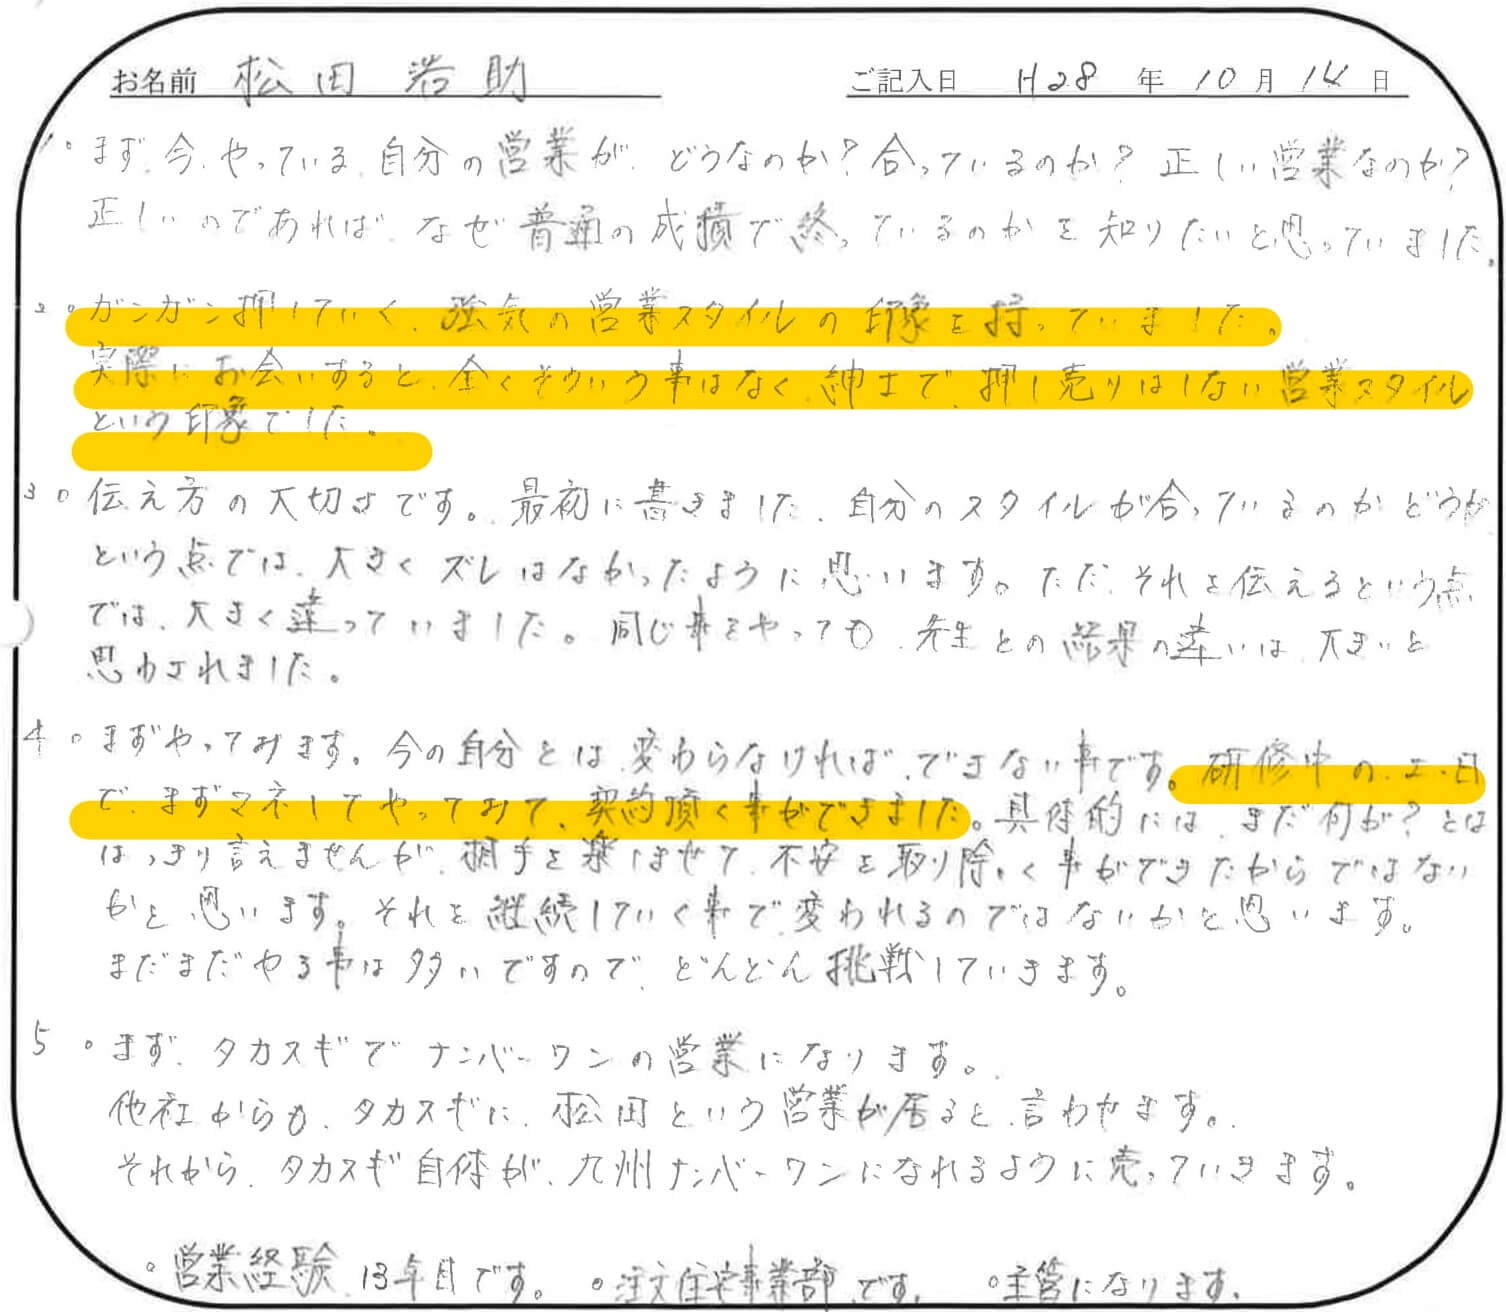 お名前 松田 浩助 ご記入日 H28 年 10 月 14 日
1。まず、今、やっている、自分の営業が、どうなのか?合っているのか?正しい営業なのか?
正しいのであれば、なぜ普通の成績で終っているのかを知りたいと思っていました。
2。ガンガン押していく、強気の営業スタイルの印象を持っていました。
実際にお会いすると、全くそういう事はなく、紳士で、押し売りはしない営業スタイル
という印象でした。
3。伝え方の大切さです。最初に書きました、自分のスタイルが合っているのかどうか
という点では、大きくズレはなかったように思います。ただ、それを伝えるという点
では、大きく違っていました。同じ事をやっても、先生との結果の違いは、大きいと
思わされました。
4。まずやってみます。今の自分とは、変わらなければ、できない事です。研修中の、土・日
で、まずマネしてやってみて、契約頂く事ができました。具体的には、まだ何が?とは
はっきり言えませんが、相手を楽しませて、不安を取り除く事ができたからではない
かと思います。それを継続していく事で、変われるのではないかと思います。
まだまだやる事は多いですので、どんどん挑戦していきます。
5 。まず、タカスギでナンバーワンの営業になります。
他社からも、タカスギに、松田という営業が居ると、言わせます。
それから、タカスギ自体が、九州ナンバーワンになれるように売っていきます。
。営業経験、13年目です。 。注文住宅事業部、です。 。主管になります。